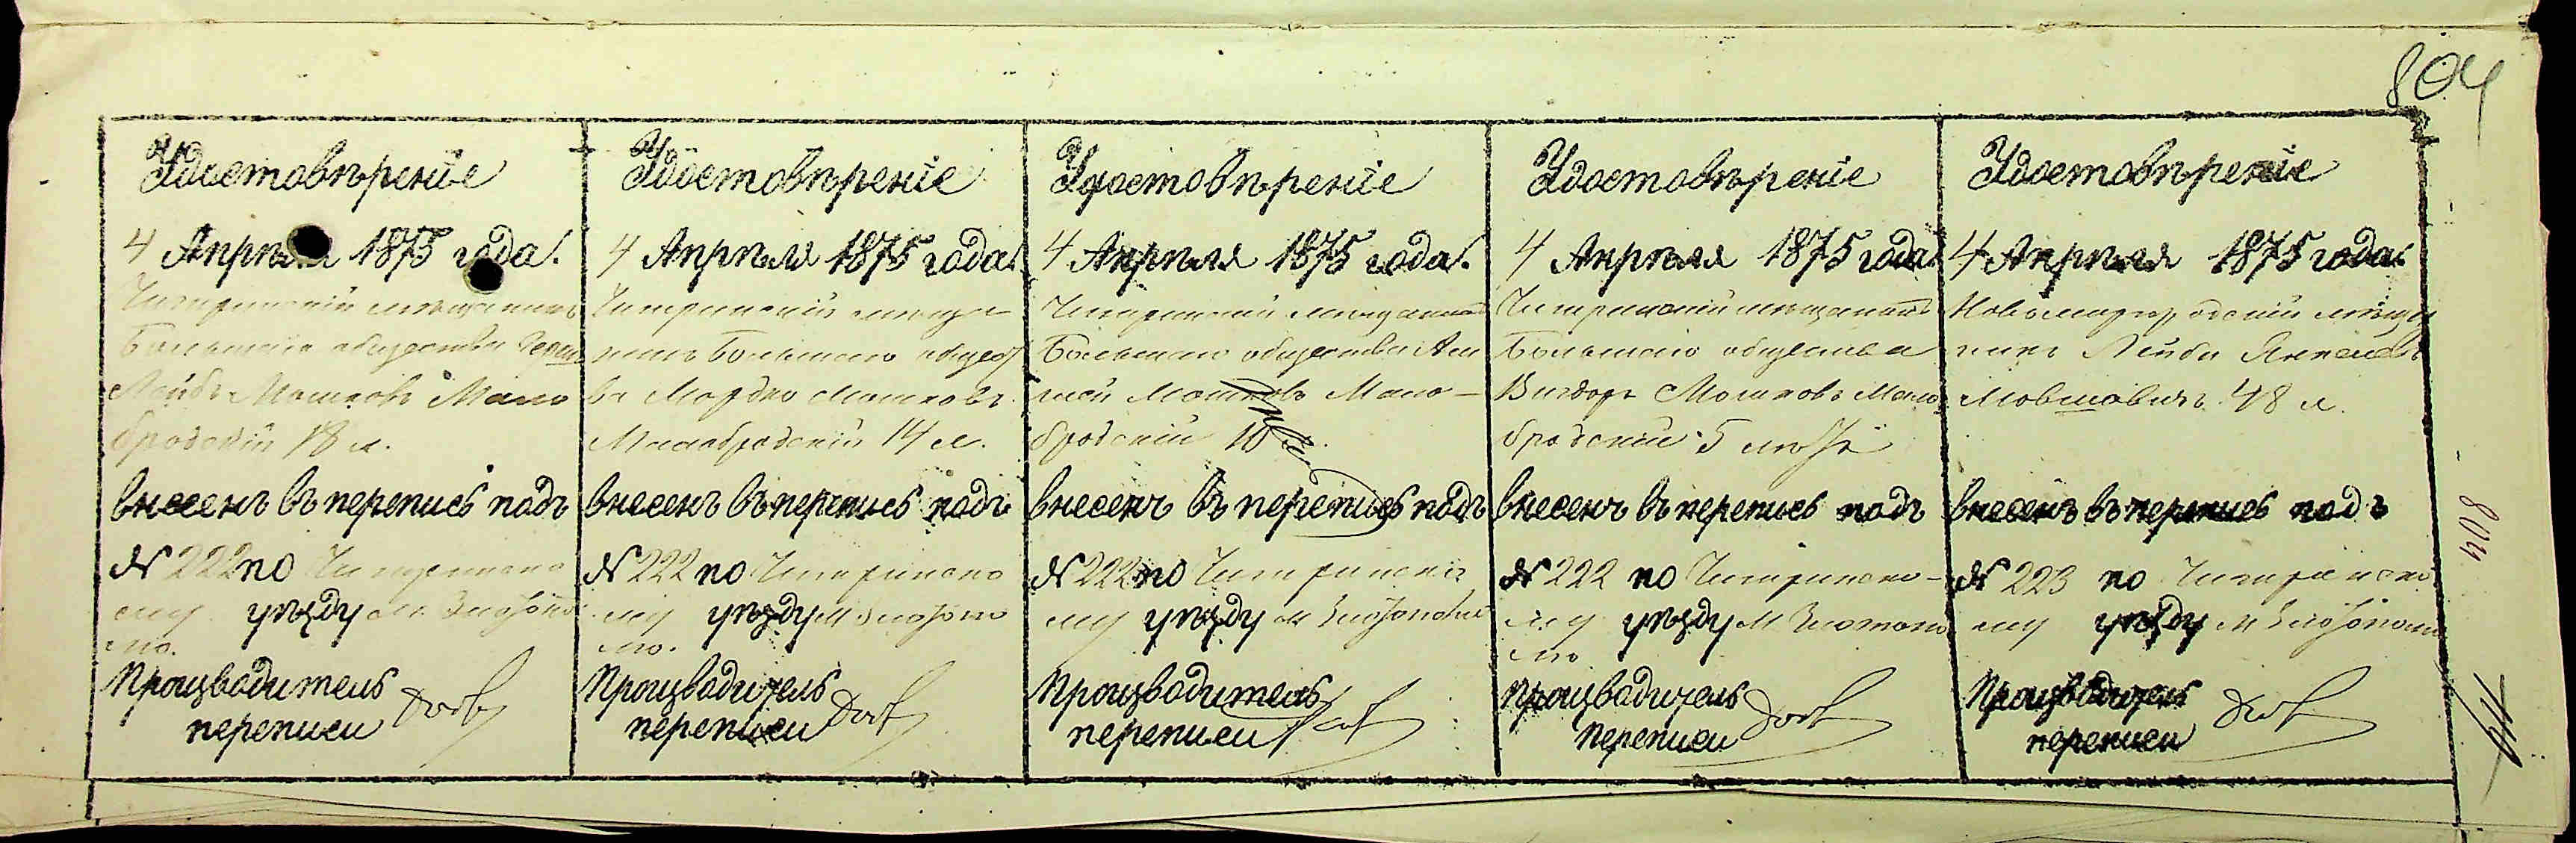 804
Удостовѣреніе
4 Апрѣля 1875 года.
Чигиринскій мѣщанинъ
Большаго общества
Лейбъ Мошковъ Мало
бродскій 18 л.
внесенъ въ перепись подъ
№ 222 по Чигиринско
му уѣзду м. Златопо
лю.
Производитель
переписи
Удостовѣреніе
4 Апрѣля 1875 года.
Чигиринскій мѣща
нинъ Большаго общест
ва Мордко Мошковъ
Малобродскій 14 л.
внесенъ въ перепись подъ
№ 222 по Чигиринско
му уѣзду м Златопо
лю.
Производитель
переписи
Удостовѣреніе
4 Апрѣля 1875 года.
Чигиринскій мѣщанинъ
Большаго общества
Мошковъ Мало-
бродскій 10
внесенъ въ перепись подъ
№ 222 по Чигиринско
му уѣзду м Златополю
Производитель
переписи
Удостовѣреніе
4 Апрѣля 1875 года
Чигиринскій мѣщанинъ
Большаго общества
Вигдоръ Мошковъ Мало
бродскій 5 лѣтъ
внесенъ въ перепись подъ
№ 222 по Чигиринско-
му уѣзду м Златопо
лю
Производитель
переписи
Удостовѣреніе
4 Апрѣля 1875 года.
Новомиргородскій мѣща
нинъ Лейба Янкелевъ
Мовшовичъ 48 л.
внесенъ въ перепись подъ
№ 223 по Чигиринско
му уѣзду м Златополю
Производитель
переписи
804